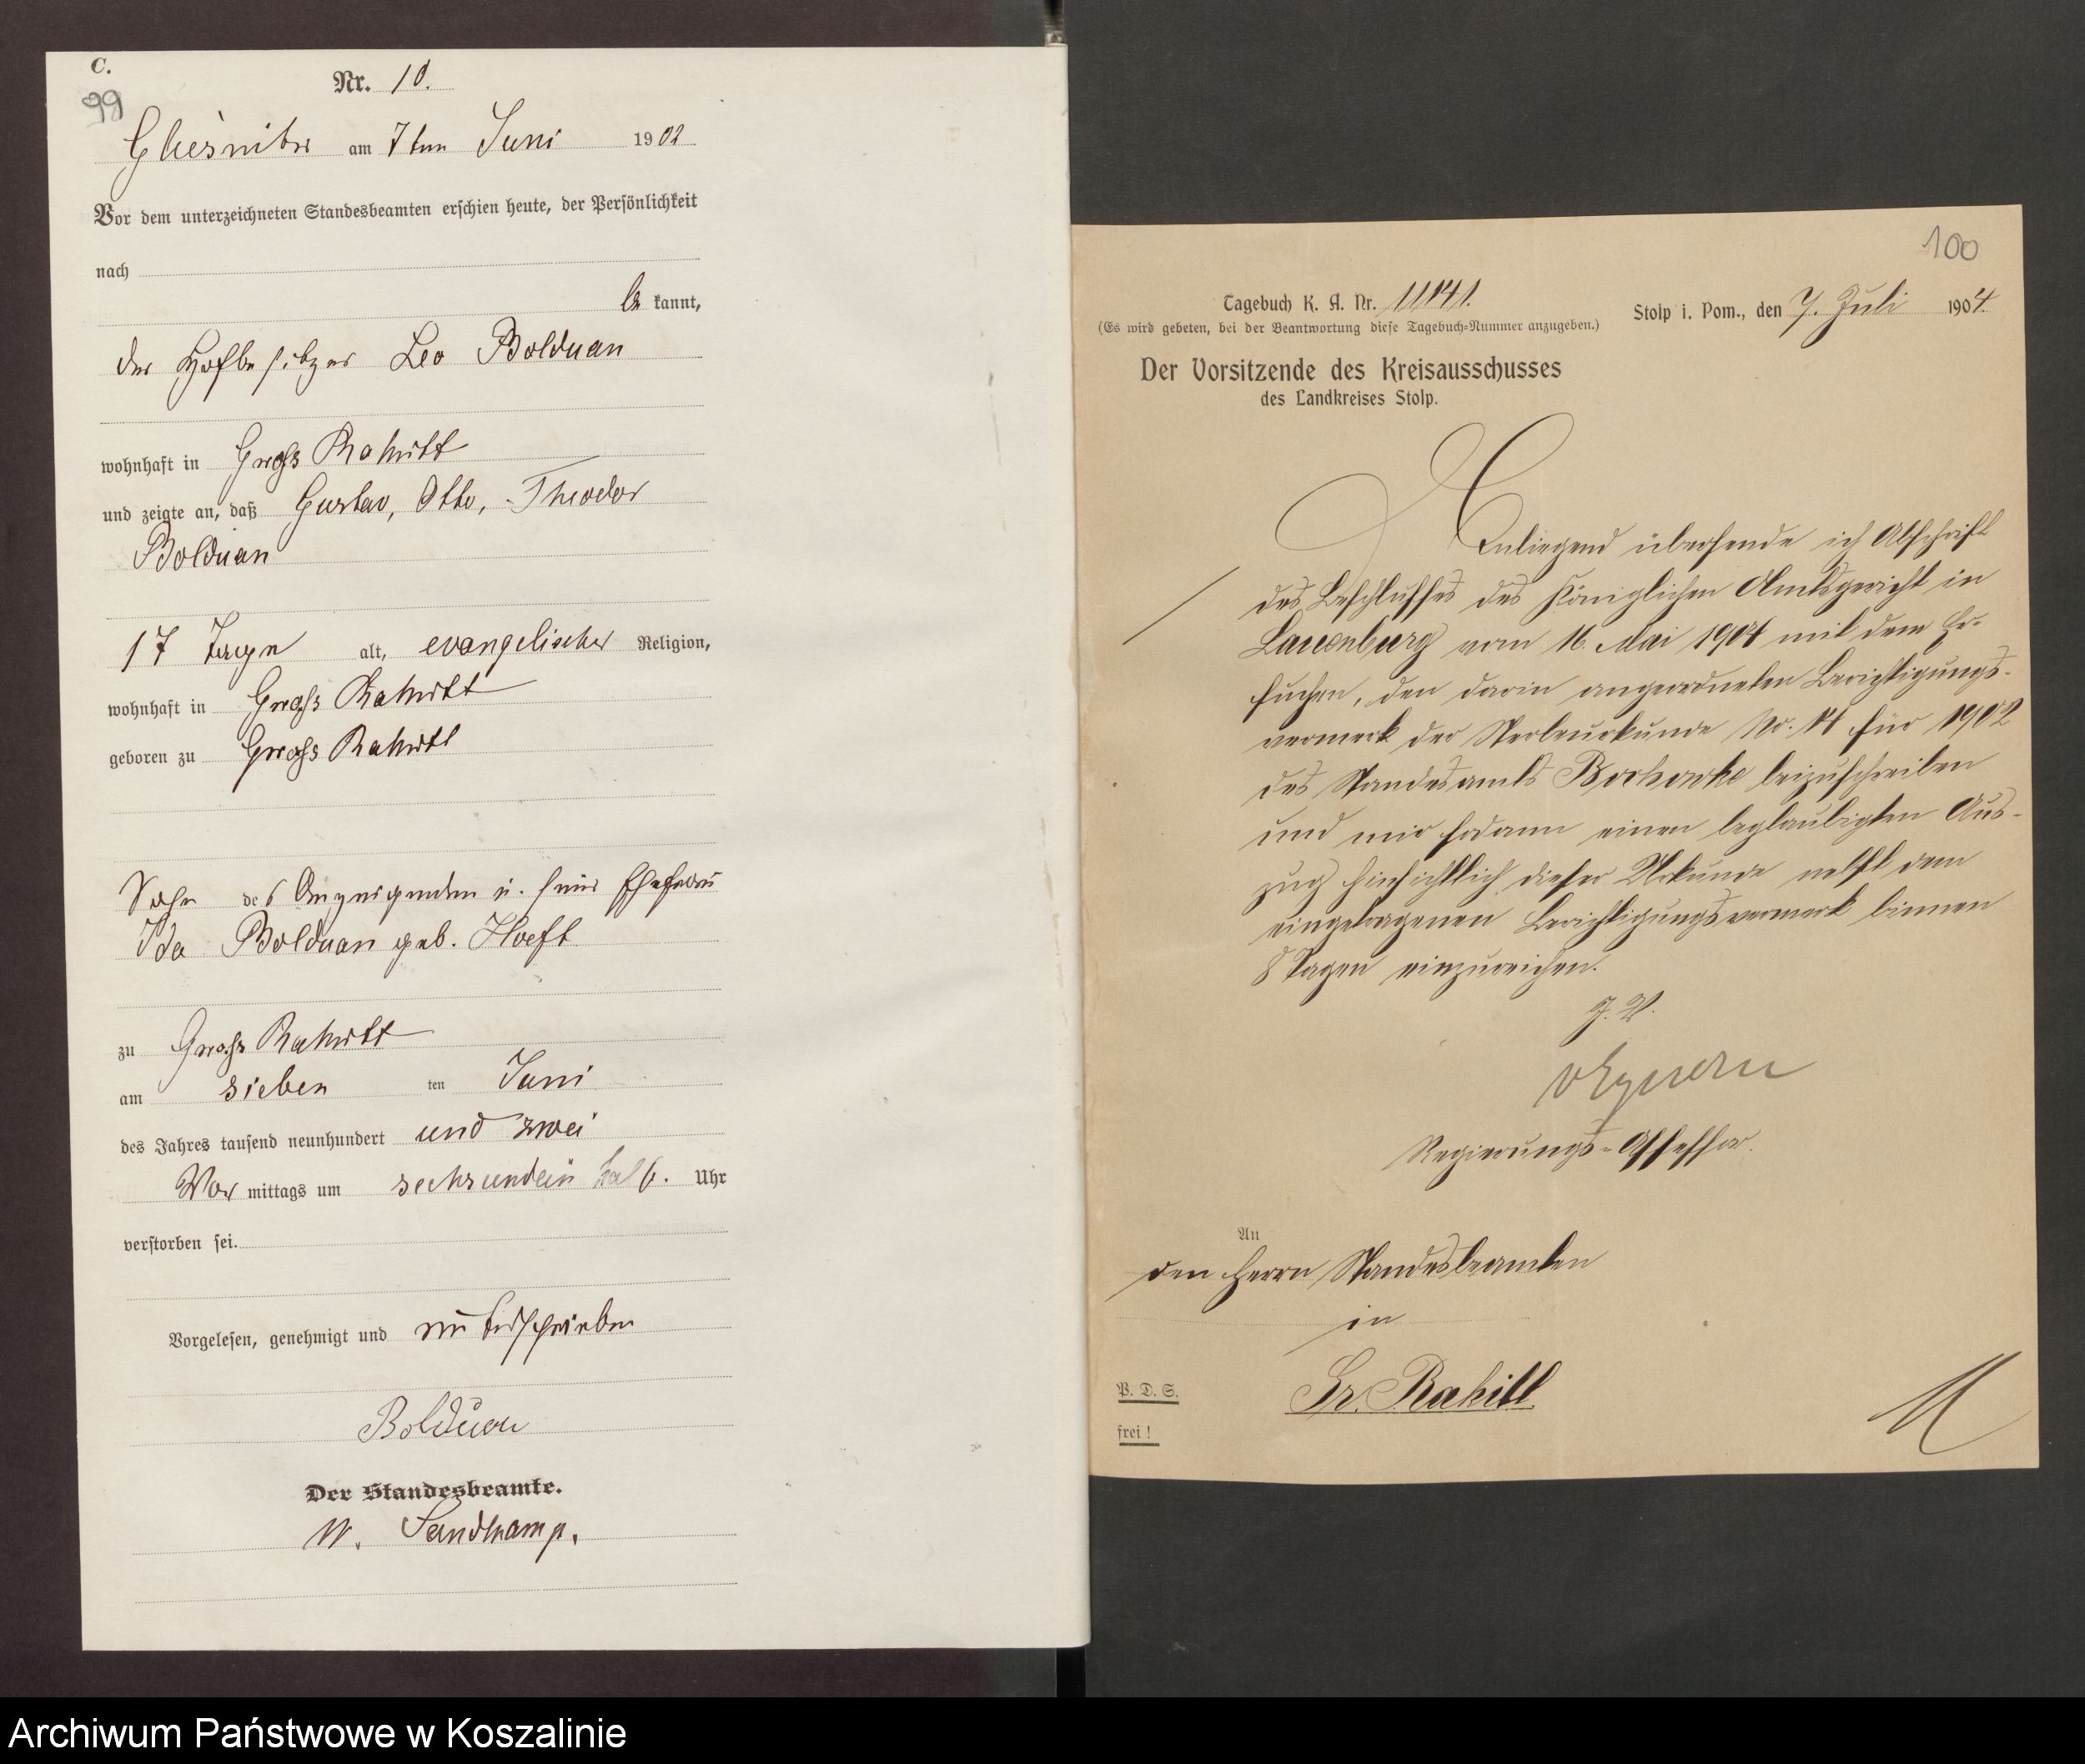 C.
99
Nr. 10.
Gliesnitz am 7ten Juni 1902
Vor dem unterzeichneten Standesbeamten erschien heute, der Persönlichkeit
nach
be kannt,
der Hofbesitzer Leo Bolduan
wohnhaft in Gross Rakitt
und zeigte an, daß Gustav, Otto, Theodor
Bolduan
17 Tage alt, evangelischer Religion,
wohnhaft in Gross Rakitt
geboren zu Gross Rakitt
Sohn des Anzeigenden u. seiner Ehefrau
Ida Bolduan geb. Hoeft
zu Gross Rakitt
am sieben ten Juni
des Jahres tausend neunhundert und zwei
Vor mittags um sechsundein halb. Uhr
verstorben sei.
Vorgelesen, genehmigt und unterschrieben
Bolduan
Der Standesbeamte.
W. Sandkamp.
100
Tagebuch K. A. Nr. 11141.
Stolp i. Pom., den 7. Juli 1904.
(Es wird gebeten, bei der Beantwortung diese Tagebuch-Nummer anzugeben.)
Der Vorsitzende des Kreisausschusses
des Landkreises Stolp.
Anliegend übersende ich Abschrift
des Beschlusses des Königlichen Amtsgericht in
Lauenburg vom 16. Mai 1904 mit dem Er-
suchen, den darin angeordneten Berichtigungs-
vermerk der Sterbeurkunde Nr. 14 für 1902
des Standesamts beizuschreiben
und mir sodann einen beglaubigten Aus-
zug hinsichtlich dieser Urkunde nebst dem
eingetragenen Berichtigungsvermerk binnen
8 Tagen einzureichen.
J. V.
Regierungs-Assessor.
An
den Herrn Standesbeamten
in
Gr. Rakitt.
P. D. S.
frei!
Archiwum Państwowe w Koszalinie